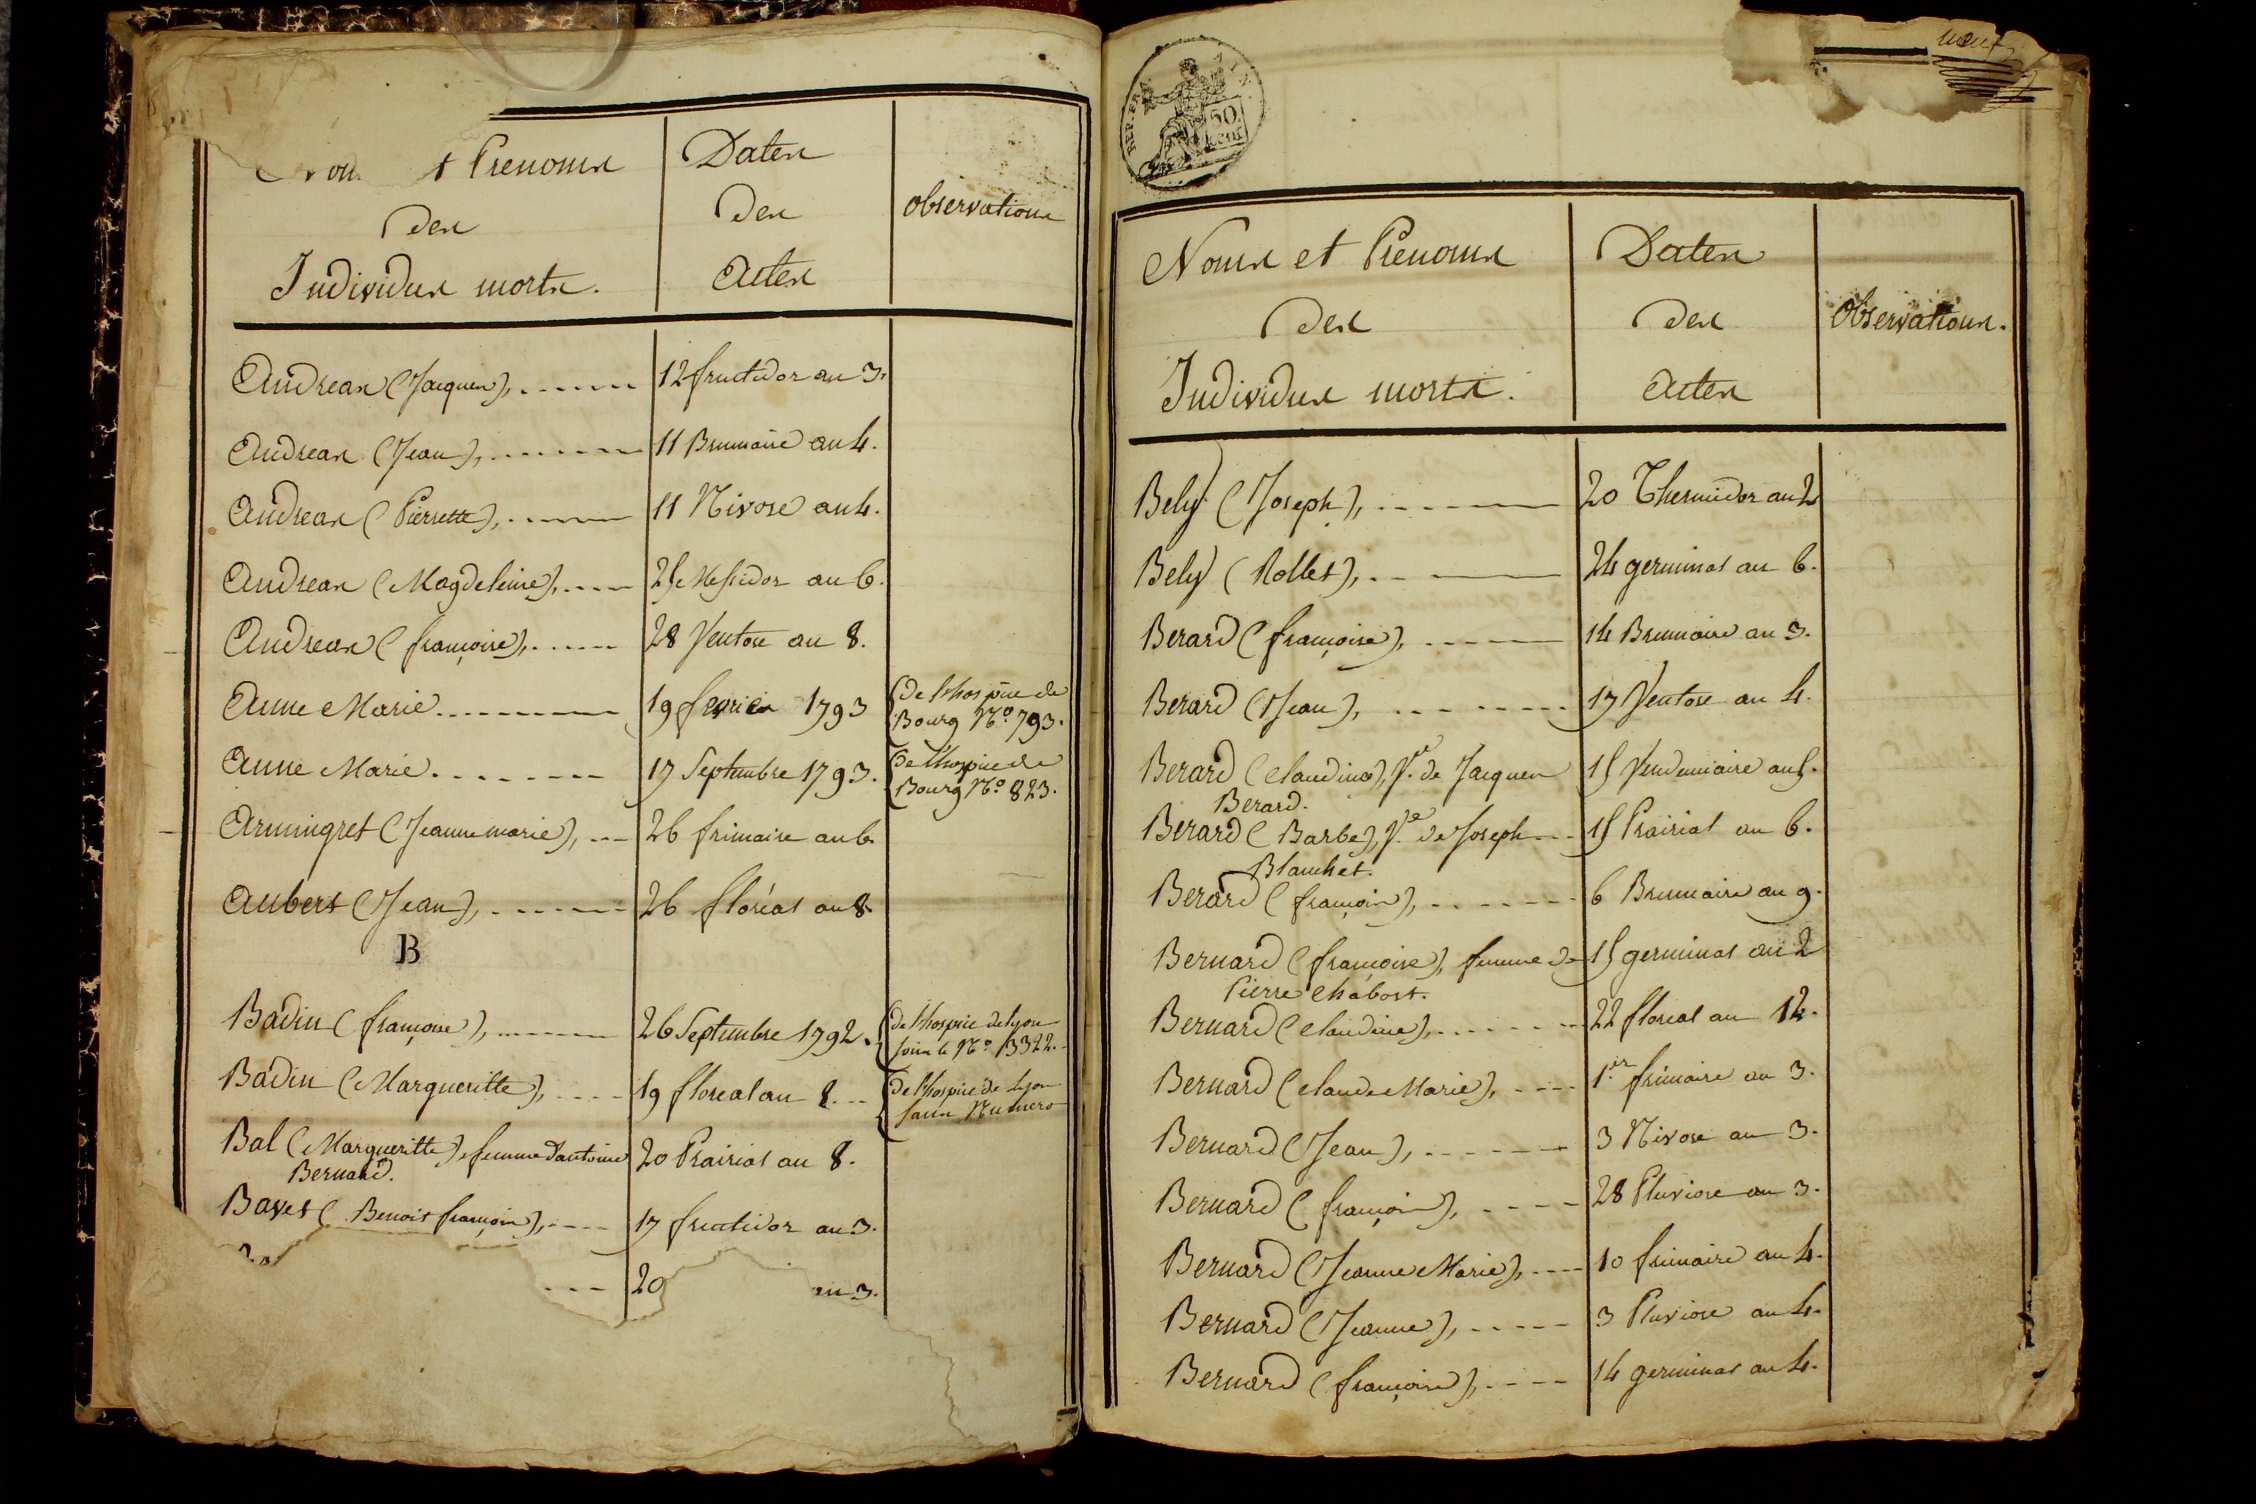 et Prenoms
des
Individus morts.
Dates
des
Actes
observations
Andrean (Jacques), 12 fructidor an 3.
Andrean (Jean), 11 Brumaire an 4.
Andrean (Pierrette), 11 Nivose an 4.
Andrean (Magdeleine), 25 Messidor an 6.
Andrean (françoise), 28 Ventose an 8.
Anne Marie 19 fevrier 1793 de l'hospice de
Bourg N.º 793.
Anne Marie 17 Septembre 1793. de l'hospice de
Bourg N.º 823.
Armingret (Jeanne marie), 26 frimaire an 6.
Aubert (Jean), 26 floréal an 8.
B
Badin (françoise), 26 Septembre 1792. de l'hospice de Lyon
sous le N.º 13322.
Badin (Margueritte), 19 floreal an 8. de l'hospice de Lyon
sans Numero
Bal (Margueritte), femme d'antoine 20 Prairial an 8.
Bernard.
Bayet (Benoit françois), 17 fructidor an 3.
20 an 3.
REP. FRA.
50
CENT
neuf
Noms et Prénoms
des
Individus morts.
Dates
des
Actes
Observations.
Bely (Joseph), 20 Thermidor an 2
Bely (Rollet), 24 germinal an 6.
Berard (françoise), 14 Brumaire an 3.
Berard (Jean), 17 Ventose an 4.
Berard (claudine), V.e de Jacques 15 Vendemiaire an 5.
Berard.
Berard (Barbe), V.e de Joseph 15 Prairial an 6.
Blanchet.
Berard (françois), 6 Brumaire an 9.
Bernard (françoise), femme de 15 germinal an 2
Pierre Chabost.
Bernard (claudine), 22 floreal an 12.
Bernard (claude Marie), 1.er frimaire an 3.
Bernard (Jean), 3 Nivose an 3.
Bernard (françois), 28 Pluviose an 3.
Bernard (Jeanne Marie), 10 frimaire an 4.
Bernard (Jeanne), 3 Pluviose an 4.
Bernard (françoise), 14 germinal an 4.